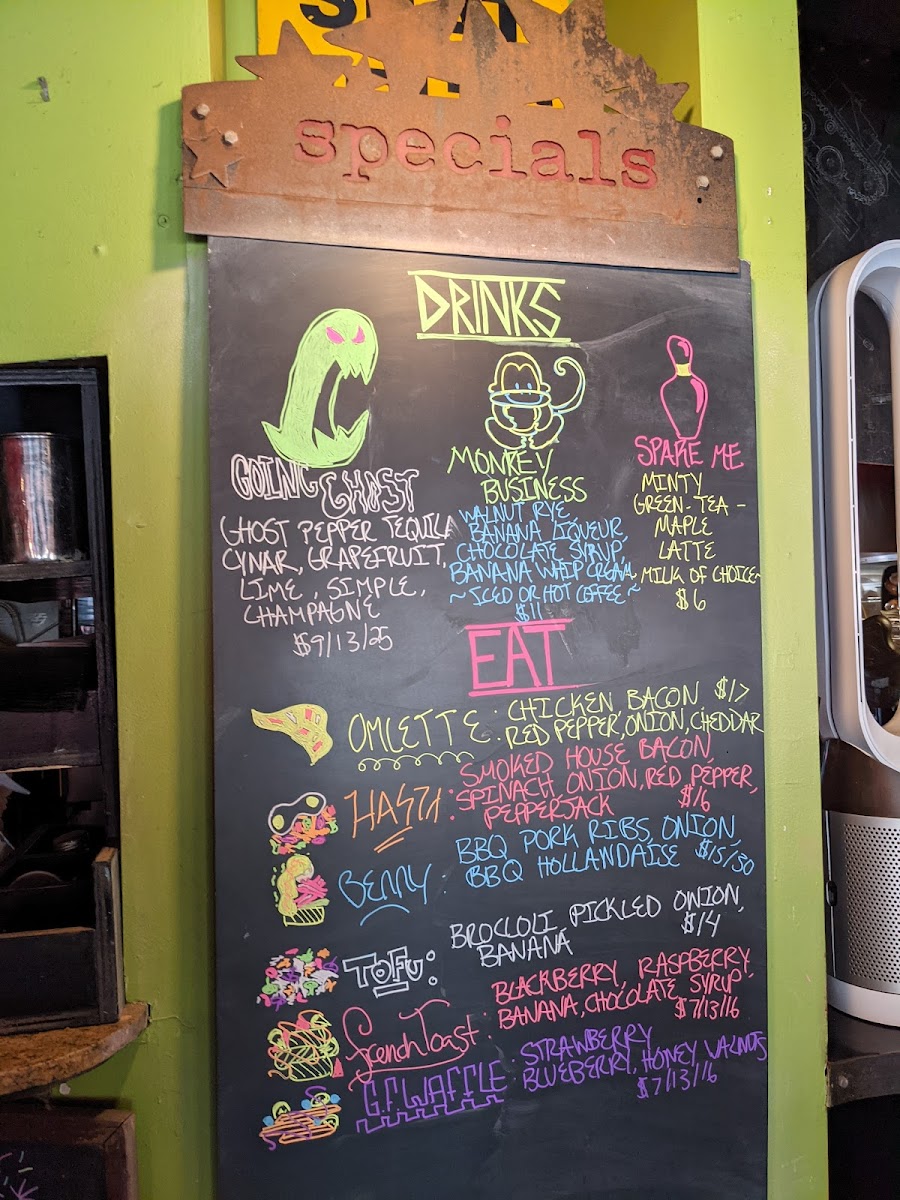 specials
DRINKS
GOING GHOST
GHOST PEPPER TEQUILA
CYNAR, GRAPEFRUIT,
LIME, SIMPLE,
CHAMPAGNE
$9/13/25
MONKEY
BUSINESS
WALNUT RYE,
BANANA LIQUEUR,
CHOCOLATE SYRUP,
BANANA WHIP CREAM,
~ ICED OR HOT COFFEE ~
$11
SPARE ME
MINTY
GREEN-TEA-
MAPLE
LATTE
MILK OF CHOICE-
$6
EAT
OMLETTE: CHICKEN, BACON $17
RED PEPPER, ONION, CHEDDAR
HASH: SMOKED HOUSE BACON,
SPINACH, ONION, RED PEPPER,
PEPPERJACK $16
BENNY: BBQ PORK RIBS, ONION,
BBQ HOLLANDAISE $15/
TOFU: BROCLOLI, PICKLED ONION,
BANANA $14
French Toast: BLACKBERRY, RASPBERRY
BANANA, CHOCOLATE SYRUP
$7/13/16
G.F. WAFFLE: STRAWBERRY
BLUEBERRY, HONEY, WALNUTS
$7/13/16